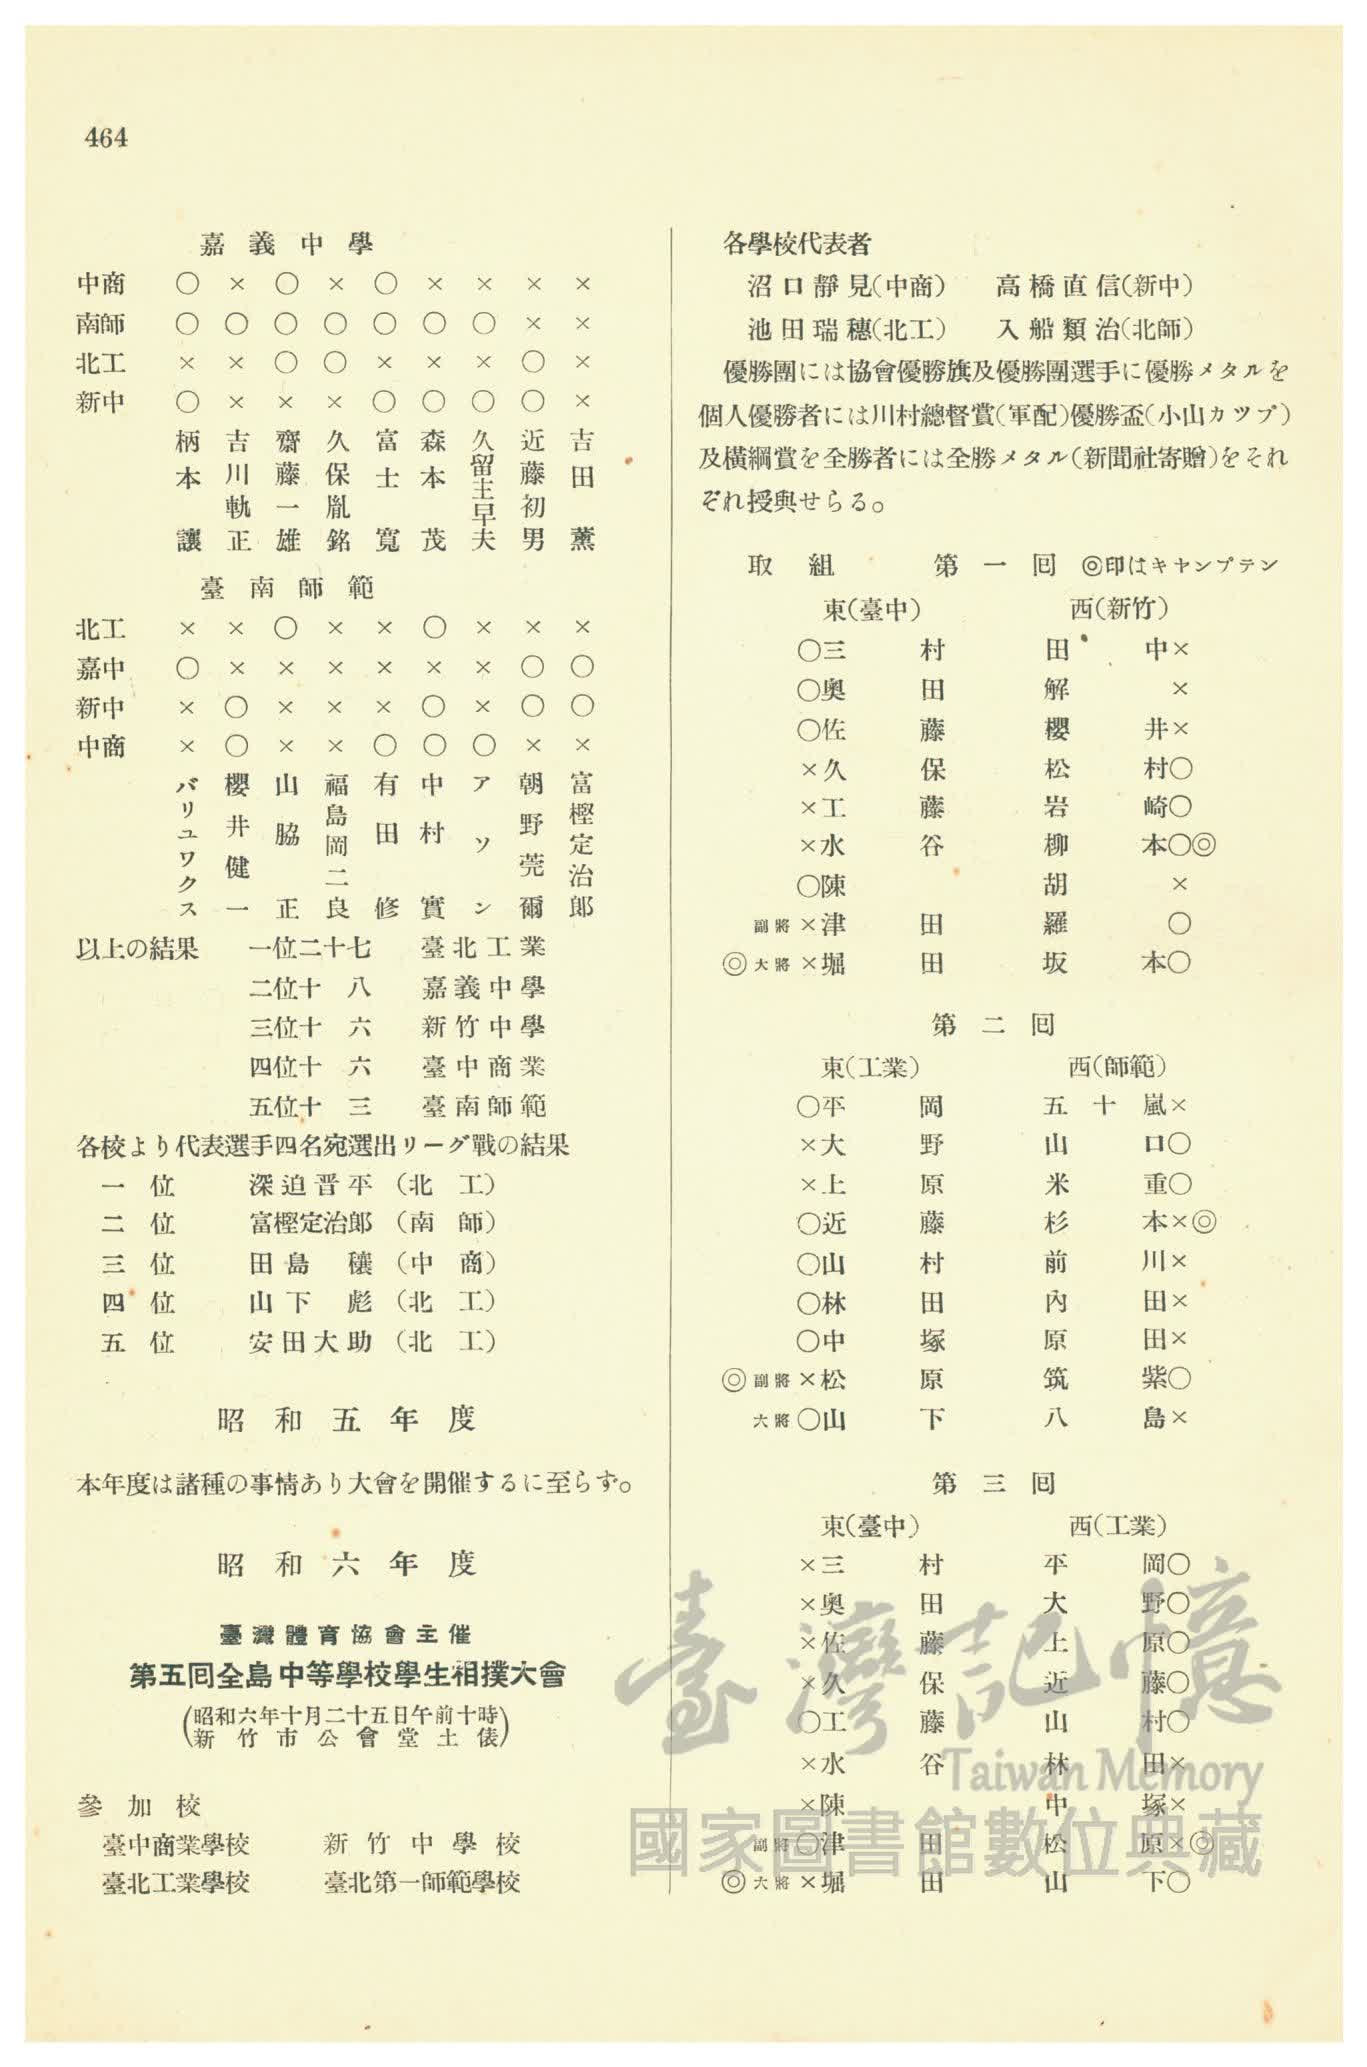 464
嘉義中學
中商 ○ × ○ × ○ × × × ×
南師 ○ ○ ○ ○ ○ ○ ○ × ×
北工 × × ○ ○ × × × ○ ×
新中 ○ × × × ○ ○ ○ ○ ×
柄本讓
吉川軌正
齋藤一雄
久保胤銘
富士寬
森本茂
久留主早夫
近藤初男
吉田薰
臺南師範
北工 × × ○ × × ○ × × ×
嘉中 ○ × × × × × × ○ ○
新中 × ○ × × × ○ × ○ ○
中商 × ○ × × ○ ○ ○ × ×
バリユワクス
櫻井健一
山脇正
福島岡二良
有田修
中村實
アソン
朝野莞爾
富樫定治郎
以上の結果 一位二十七 臺北工業
二位十八 嘉義中學
三位十六 新竹中學
四位十六 臺中商業
五位十三 臺南師範
各校より代表選手四名宛選出リーグ戰の結果
一位 深迫晋平(北工)
二位 富樫定治郎(南師)
三位 田島穰(中商)
四位 山下彪(北工)
五位 安田大助(北工)
昭和五年度
本年度は諸種の事情あり大會を開催するに至らず。
昭和六年度
臺灣體育協會主催
第五囘全島中等學校學生相撲大會
(昭和六年十月二十五日午前十時
新竹市公會堂土俵)
參加校
臺中商業學校 新竹中學校
臺北工業學校 臺北第一師範學校
各學校代表者
沼口靜見(中商) 高橋直信(新中)
池田瑞穗(北工) 入船類治(北師)
優勝團には協會優勝旗及優勝團選手に優勝メタルを
個人優勝者には川村總督賞(軍配)優勝盃(小山カツプ)
及橫綱賞を全勝者には全勝メタル(新聞社寄贈)をそれ
ぞれ授與せらる。
取組 第一囘 ◎印はキヤンプテン
東(臺中) 西(新竹)
○三村 田中×
○奧田 解×
○佐藤 櫻井×
×久保 松村○
×工藤 岩崎○
×水谷 柳本○◎
○陳 胡×
副將×津田 羅○
◎大將×堀田 坂本○
第二囘
東(工業) 西(師範)
○平岡 五十嵐×
×大野 山口○
×上原 米重○
○近藤 杉本×◎
○山村 前川×
○林田 內田×
○中塚 原田×
◎副將×松原 筑紫○
大將○山下 八島×
第三囘
東(臺中) 西(工業)
×三村 平岡○
×奧田 大野○
×佐藤 上原○
×久保 近藤○
○工藤 山村○
×水谷 林田×
×陳 中塚×
副將○津田 松原×◎
◎大將×堀田 山下○
臺灣記憶
Taiwan Memory
國家圖書館數位典藏